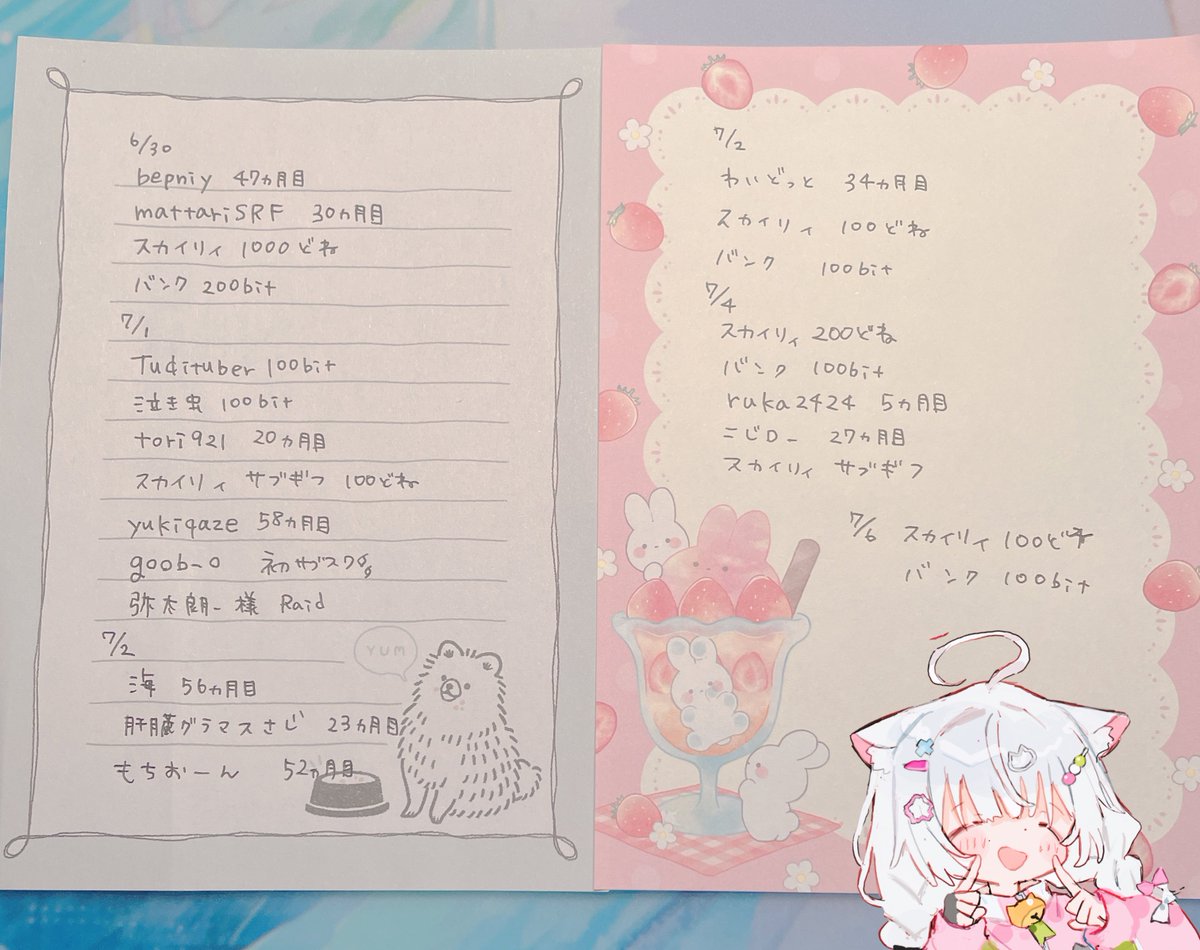 6/30
bepniy 47ヵ月目
mattariSRF 30ヵ月目
スカイリィ 1000どね
バンク 200bit
7/1
Tudituber 100bit
泣き虫 100bit
tori921 20ヵ月目
スカイリィ サブギフ 100どね
yukiqaze 58ヵ月目
goob-o 初サブスク
弥太朗ー様 Raid
7/2
海 56ヵ月目
肝臓グラマスさじ 23ヵ月目
もちおーん 52ヵ月目
YUM
7/2
わいどっと 34ヵ月目
スカイリィ 100どね
バンク 100bit
7/4
スカイリィ 200どね
バンク 100bit
ruka2424 5ヵ月目
こじロー 27ヵ月目
スカイリィ サブギフ
7/6 スカイリィ 100どネ
バンク 100bit